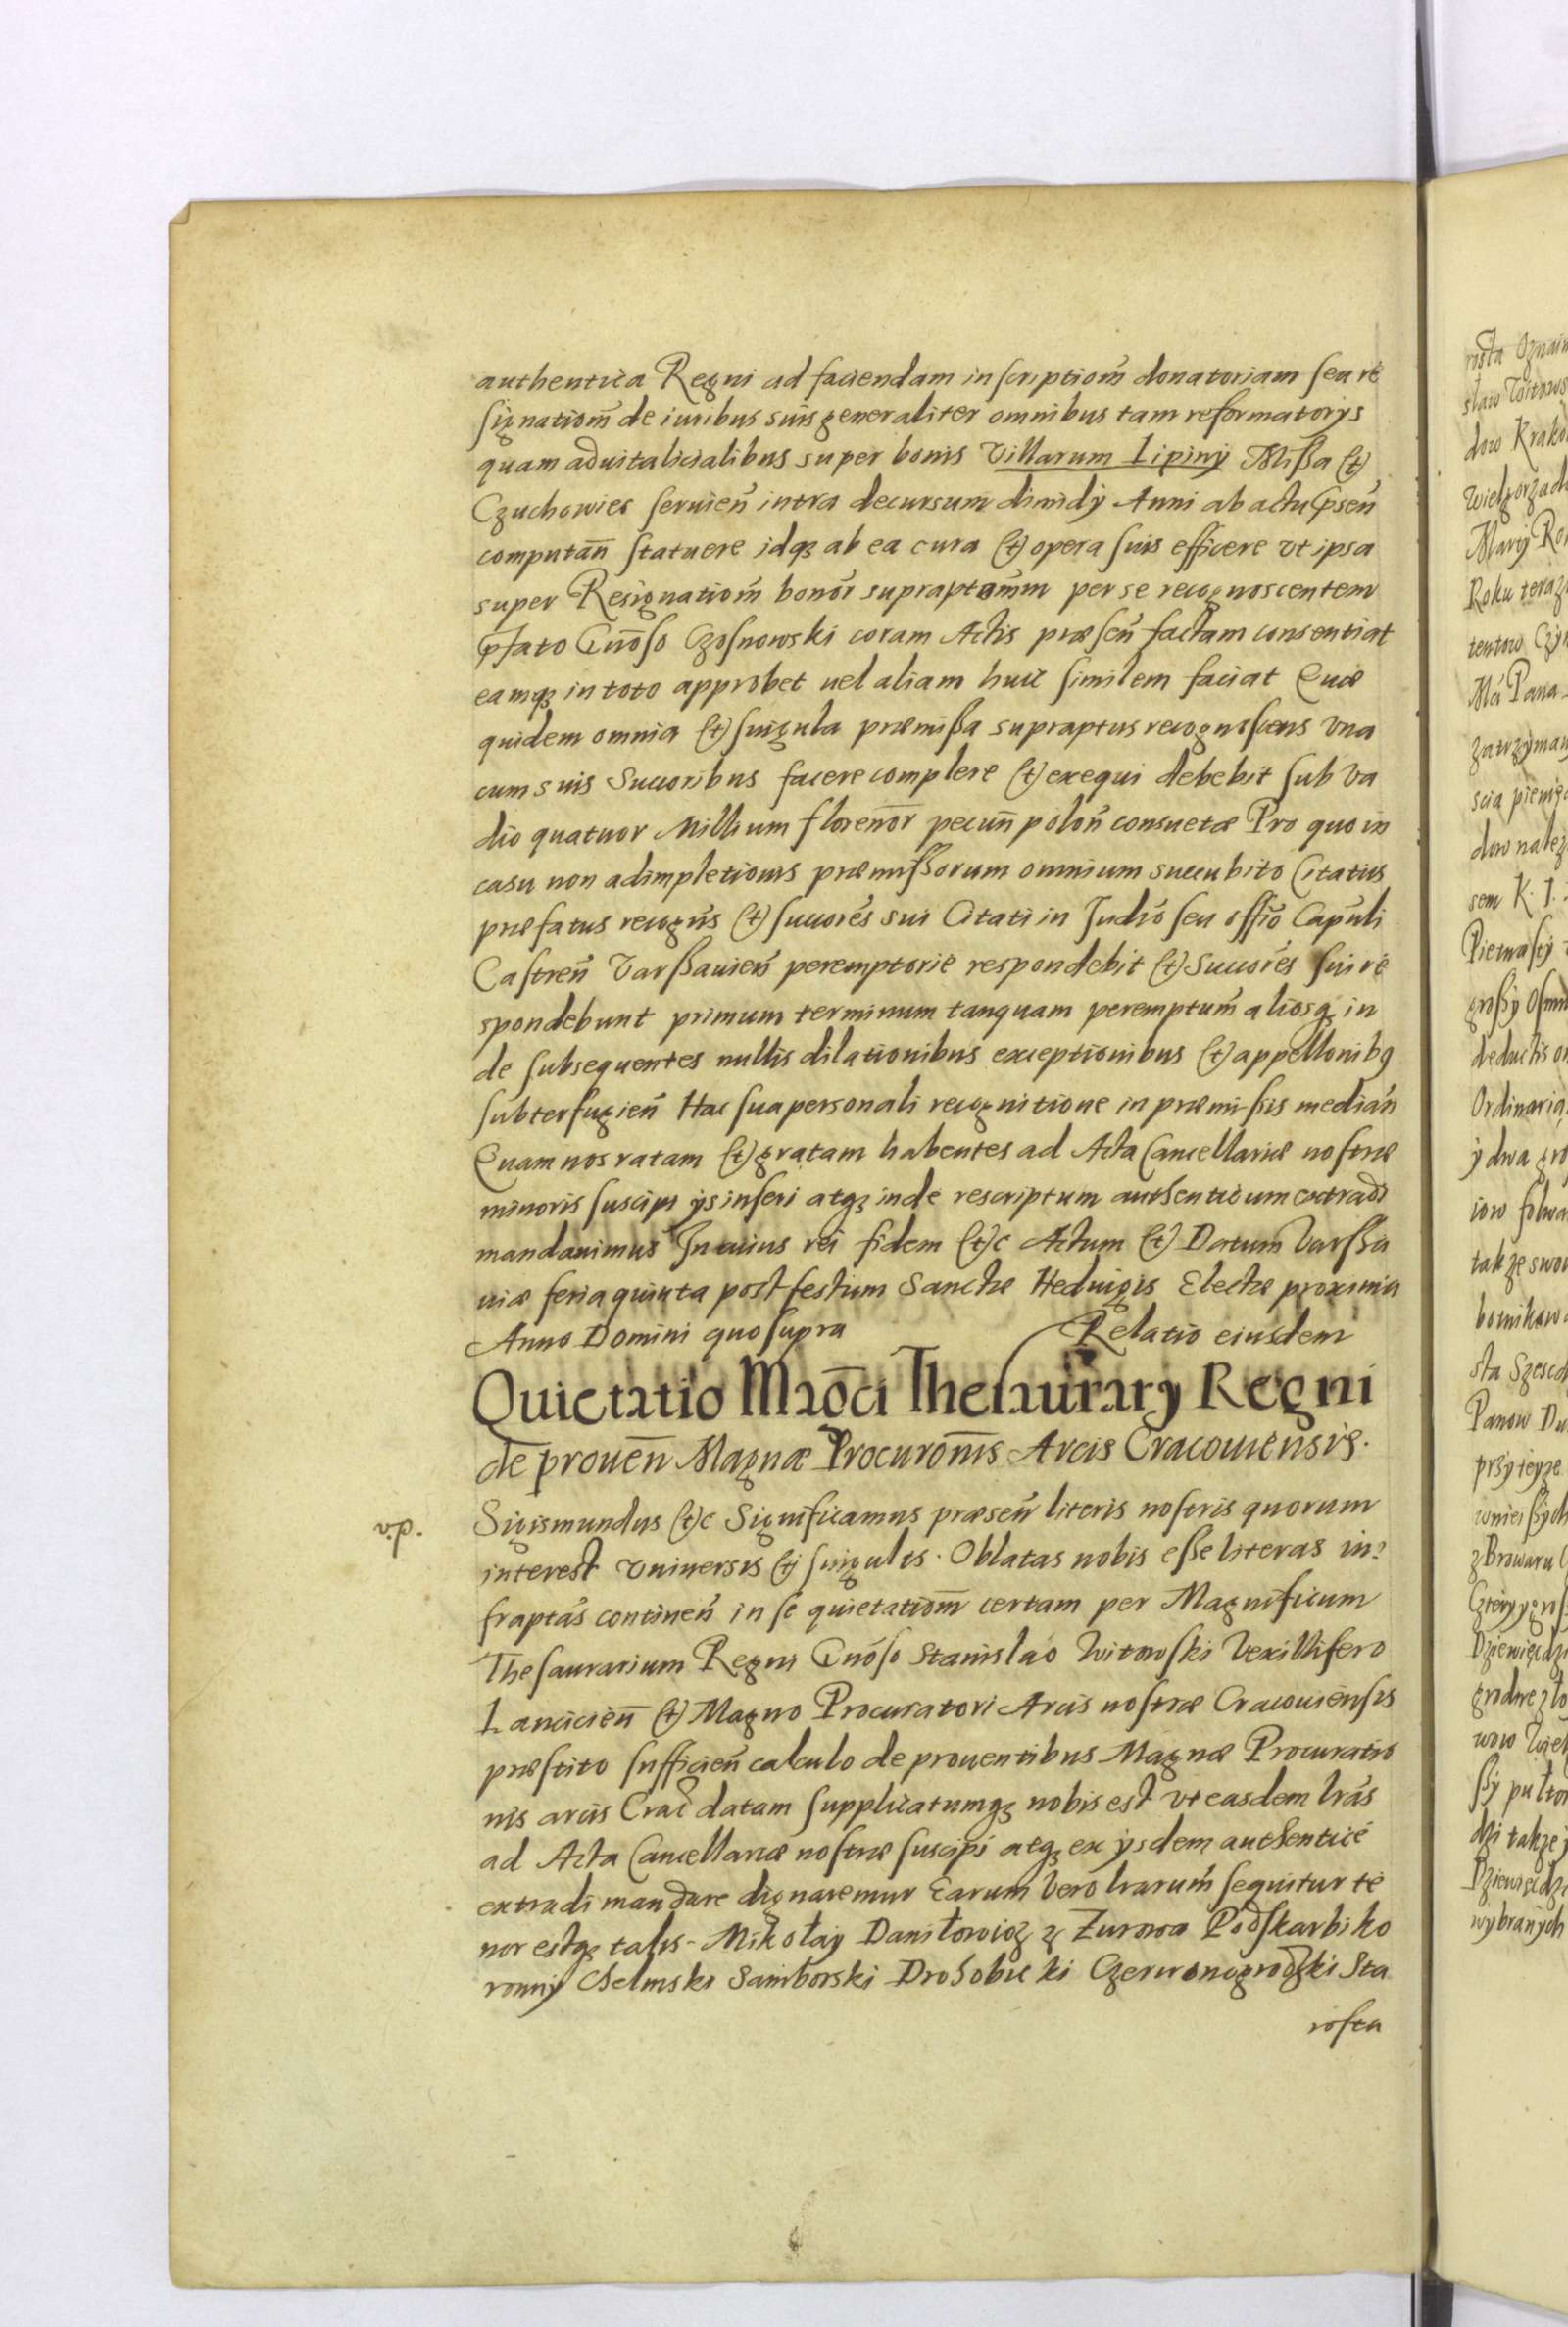 authentica Regni ad faciendam inscriptiom̄ donatoriam seu re
signatiom̄ de iuribus suis generaliter omnibus tam reformatorys
quam aduitalicialibus super bonis Villarum Lipiny Missa et
Czuchowiec seruień intra decursum dimidy Anni ab actu p̄seń
computan̄ statuere idqʒ ab ea cura et opera suis efficere vt ipsa
super Resignatiom̄ bonor̄ supraptorum per se recognoscentem
p̄fato Gn̄oso Czosnowski coram Actis præseń factam consentiat
eamqʒ in toto approbet uel aliam huic similem faciat Quæ
quidem omnia et singula præmissa supraptus recognoscens vna
cum suis Succoribus facere complere et exequi debebit sub va
dio quatuor Millium florenor̄ pecun̄ polon̄ consuetæ Pro quo in
casu non adimpletionis præmissorum omnium succubito Citatus
præfatus recogn̄s et succores sui Citati in Judio seu offio Capuli
Castren̄ Varssauień peremptorie respondebit et Succores sui re
spondebunt primum terminum tanquam peremptum̄ aliosqʒ in
de subsequentes nullis dilationibus exceptionibus et appellonibꝰ
subterfugień Hac sua personali recognitione in præmissis mediań
Quam nos ratam et gratam habentes ad Acta Cancellariæ nostræ
minoris suscipi ys inseri atqʒ inde rescriptum authenticum extradi
mandauimus In cuius rei fidem etc Actum et Datum Varssa
uiæ feria quinta post festum Sanctæ Heduigis Electæ proxima
Anno Domini quo supra Relatio eiusdem
Quietatio Mag̅ci Thesaurary Regni
de prouen̄ Magnæ Procurom̄s Arcis Cracouiensis.
Sigismundus etc Significamus præseń literis nostris quorum
interest vniuersis et singulis. Oblatas nobis esse literas in
fraptas contineń in se quietatiom̄ certam per Magnificum
Thesaurarium Regni Gn̄oso Stanislao Witowski Vexillifero
Lancicień et Magno Procuratori Arcis nostræ Cracouiensis
præstito sufficień calculo de prouentibus Magnæ Procuratio
nis arcis Crac̄ datam supplicatumqʒ nobis est vt easdem lras
ad Acta Cancellariæ nostræ suscipi atqʒ ex ysdem authentice
extradi mandare dignaremur Earum vero lrarum sequitur te
nor estqʒ talis. Mikołay Daniłowicz z Zurowa Podskarbi ko
ronny Chelmski Samborski Drohobicki Czerwonogrodzki Sta
rosta